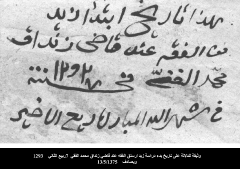 بهذا تاريخ ابتدا زيد
من الفقه عند قاضي زنداف
محمد الفقي سنة ١٢٩٢
في شهر الله المبارك ربيع الاخير
وثيقة للدلالة على تاريخ بدء دراسة زيد ارسلان الفقه عند قاضي زنداق محمد الفقي 7ربيع الثاني 1293
ويصادف 13/5/1375